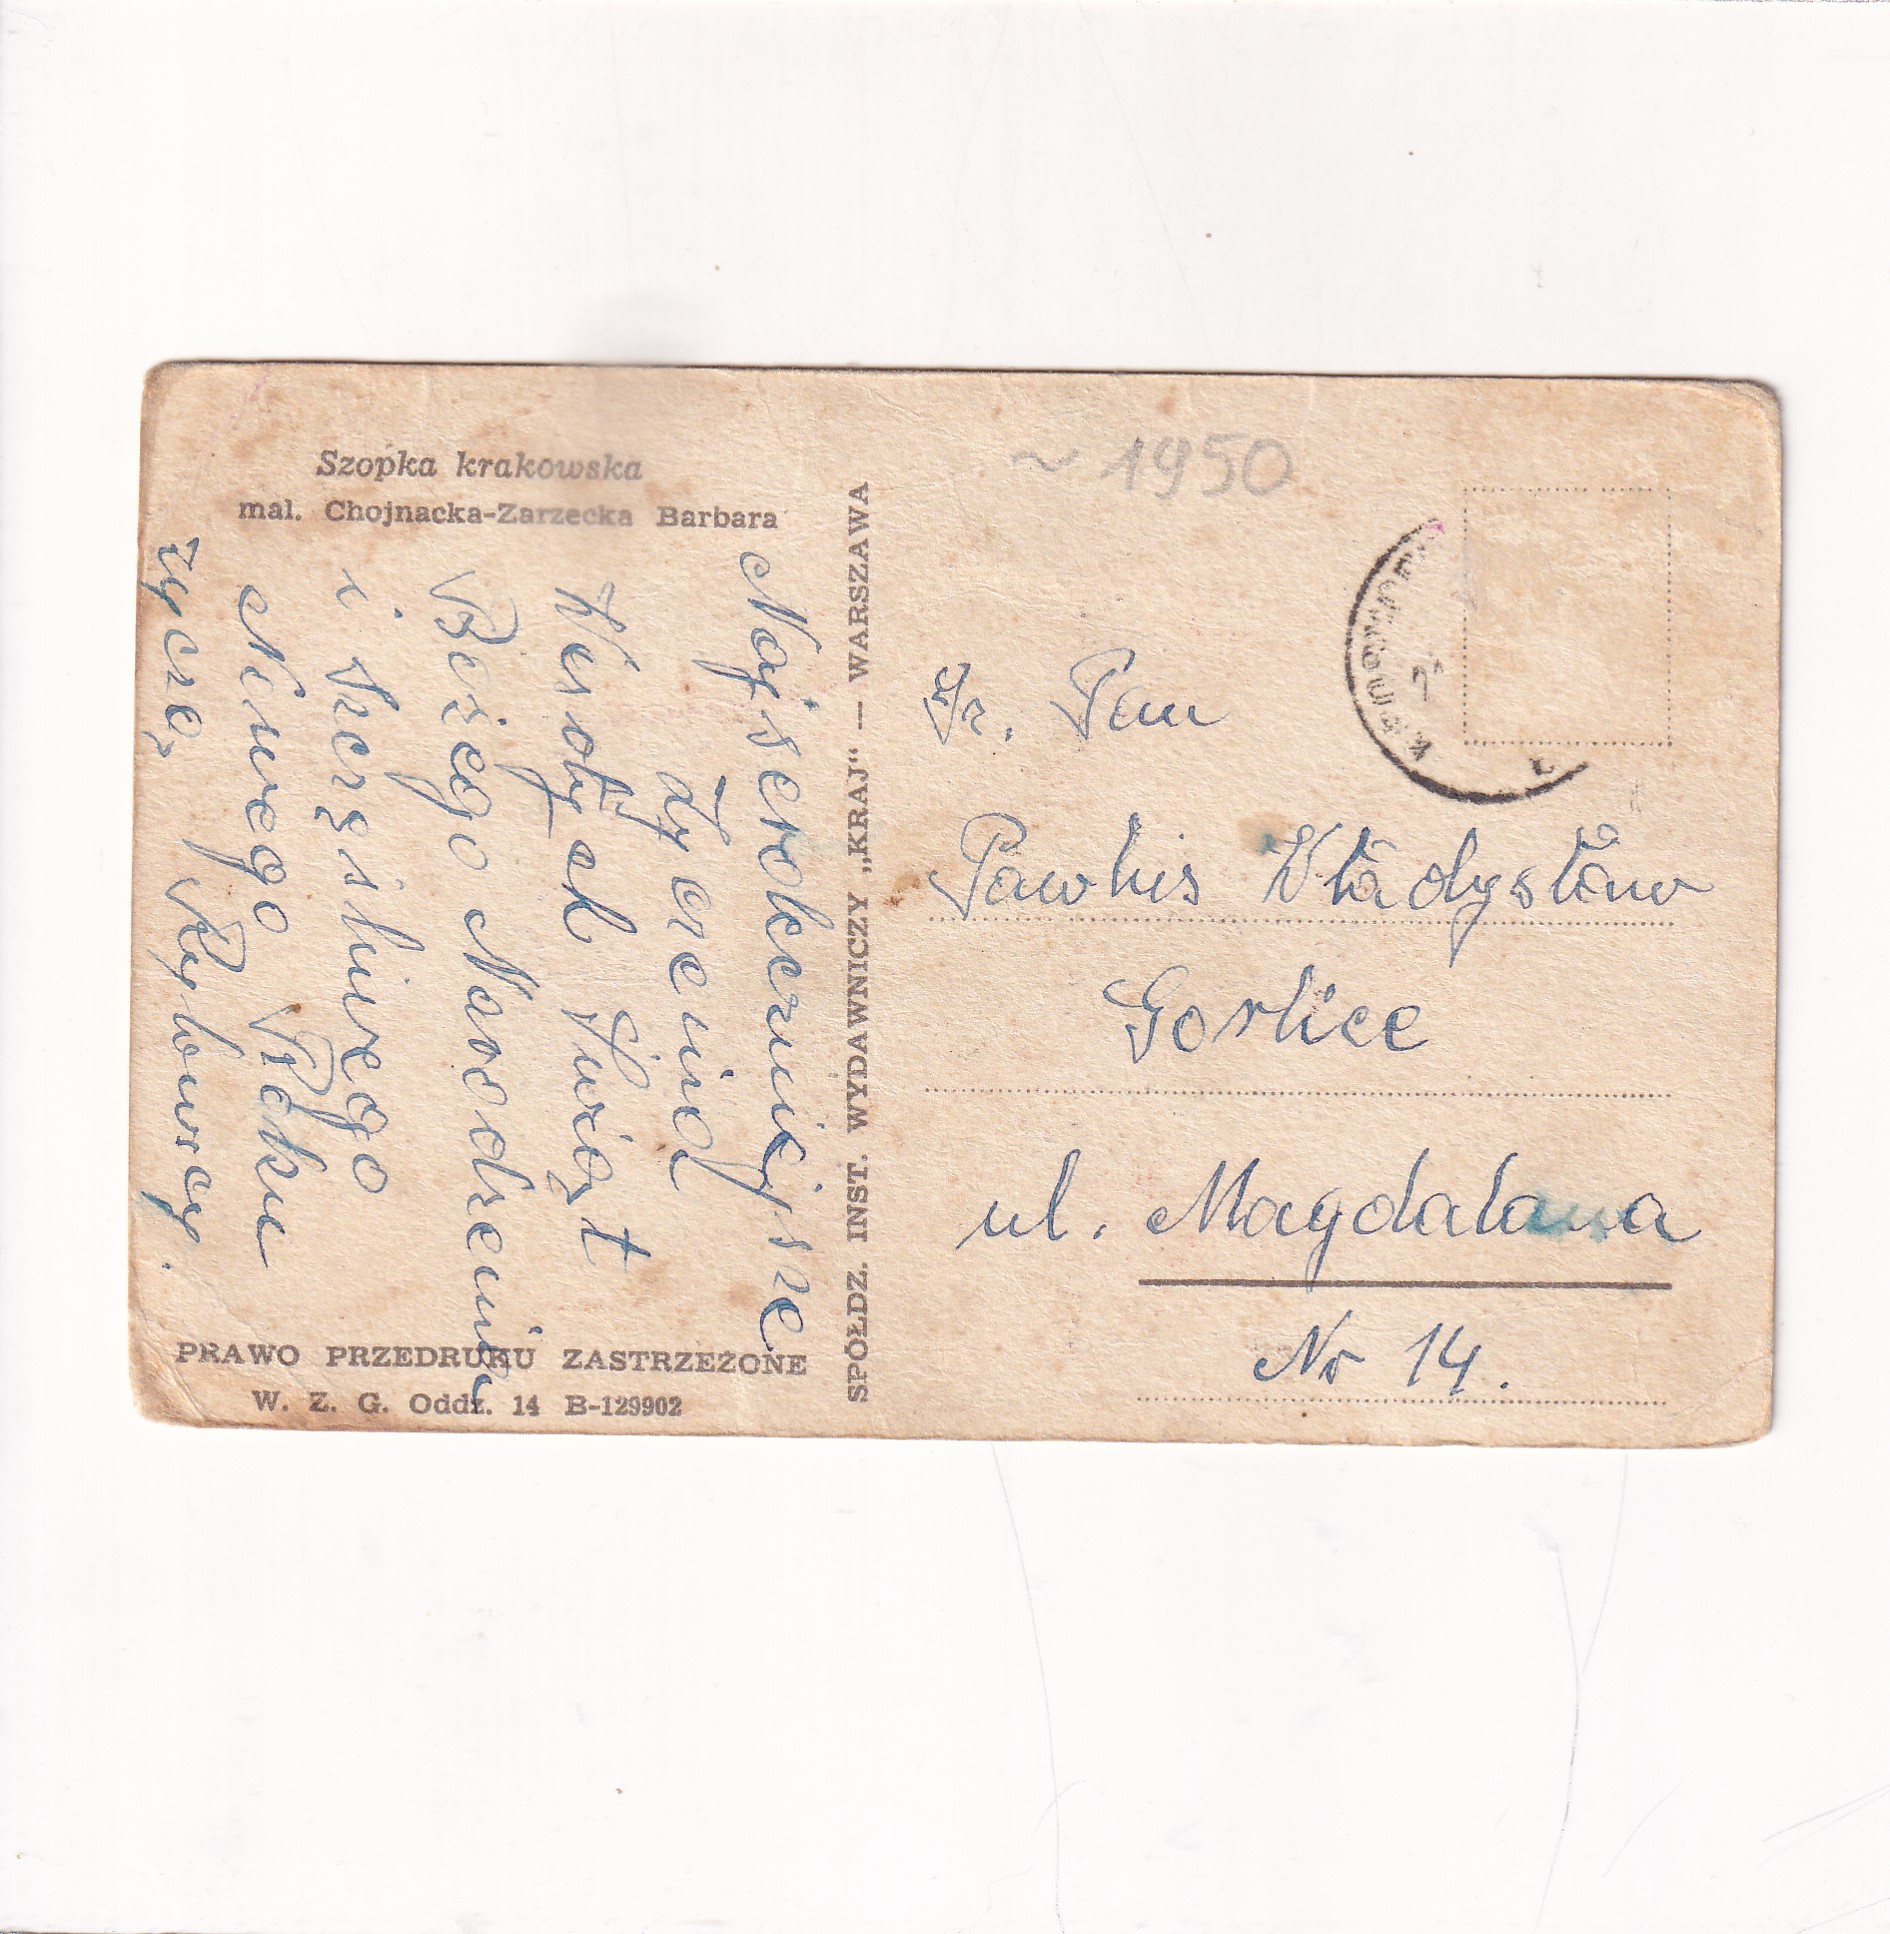 Szopka krakowska
mal. Chojnacka-Zarzecka Barbara
Najserdeczniejsze
Życzenia
Wesołych Świąt
Bożego Narodzenia
i Szczęśliwego
Nowego Roku
życzę
PRAWO PRZEDRUKU ZASTRZEŻONE
W. Z. G. Oddz. 14 B-129902
SPÓŁDZ. INST. WYDAWNICZY „KRAJ" — WARSZAWA
~ 1950
Sz. Pan
Władysław
Gorlice
ul. Magdalena
Nr 14.